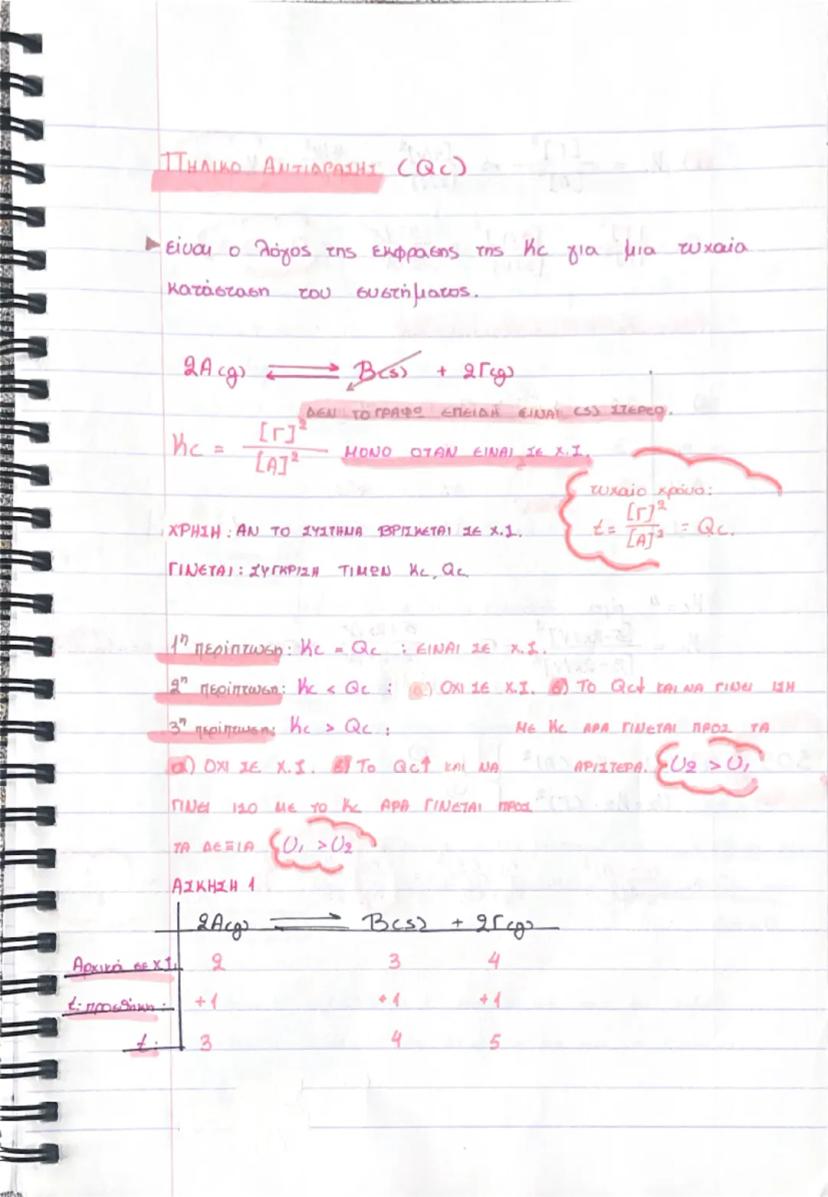 ΠΗΛΙΚΟ ΑΝΤΙΔΡΑΣΗΣ (Qc)
είναι ο λόγος της έκφρασης της Kc για μια τυχαία
κατάσταση του συστήματος.
2A(g) ⇌ B(s) + 2Γ(g)
ΔΕΝ ΤΟ ΓΡΑΦΩ ΕΠΕΙΔΗ ΕΙΝΑΙ (s) ΣΤΕΡΕΟ.
Kc = [Γ]² / [A]² ΜΟΝΟ ΟΤΑΝ ΕΙΝΑΙ ΣΕ Χ.Ι.
τυχαίο χρόνο:
t = [Γ]² / [A]² = Qc.
ΧΡΗΣΗ: ΑΝ ΤΟ ΣΥΣΤΗΜΑ ΒΡΙΣΚΕΤΑΙ ΣΕ Χ.Ι.
ΓΙΝΕΤΑΙ: ΣΥΓΚΡΙΣΗ ΤΙΜΩΝ Kc, Qc
1η περίπτωση: Kc = Qc : ΕΙΝΑΙ ΣΕ Χ.Ι.
2η περίπτωση: Kc < Qc : α) ΟΧΙ ΣΕ Χ.Ι. β) ΤΟ Qc↓ ΚΑΙ ΝΑ ΓΙΝΕΙ ΙΣΗ
ΜΕ Kc ΑΡΑ ΓΙΝΕΤΑΙ ΠΡΟΣ ΤΑ
ΑΡΙΣΤΕΡΑ. U2 > U1
3η περίπτωση: Kc > Qc :
α) ΟΧΙ ΣΕ Χ.Ι. β) ΤΟ Qc↑ ΚΑΙ ΝΑ
ΓΙΝΕΙ ΙΣΟ ΜΕ ΤΟ Kc ΑΡΑ ΓΙΝΕΤΑΙ ΠΡΟΣ
ΤΑ ΔΕΞΙΑ U1 > U2
ΑΣΚΗΣΗ 1
2A(g) ⇌ B(s) + 2Γ(g)
Αρχικά σε Χ.Ι. 2 3 4
t: προσθήκη: +1 +1 +1
t: 3 4 5